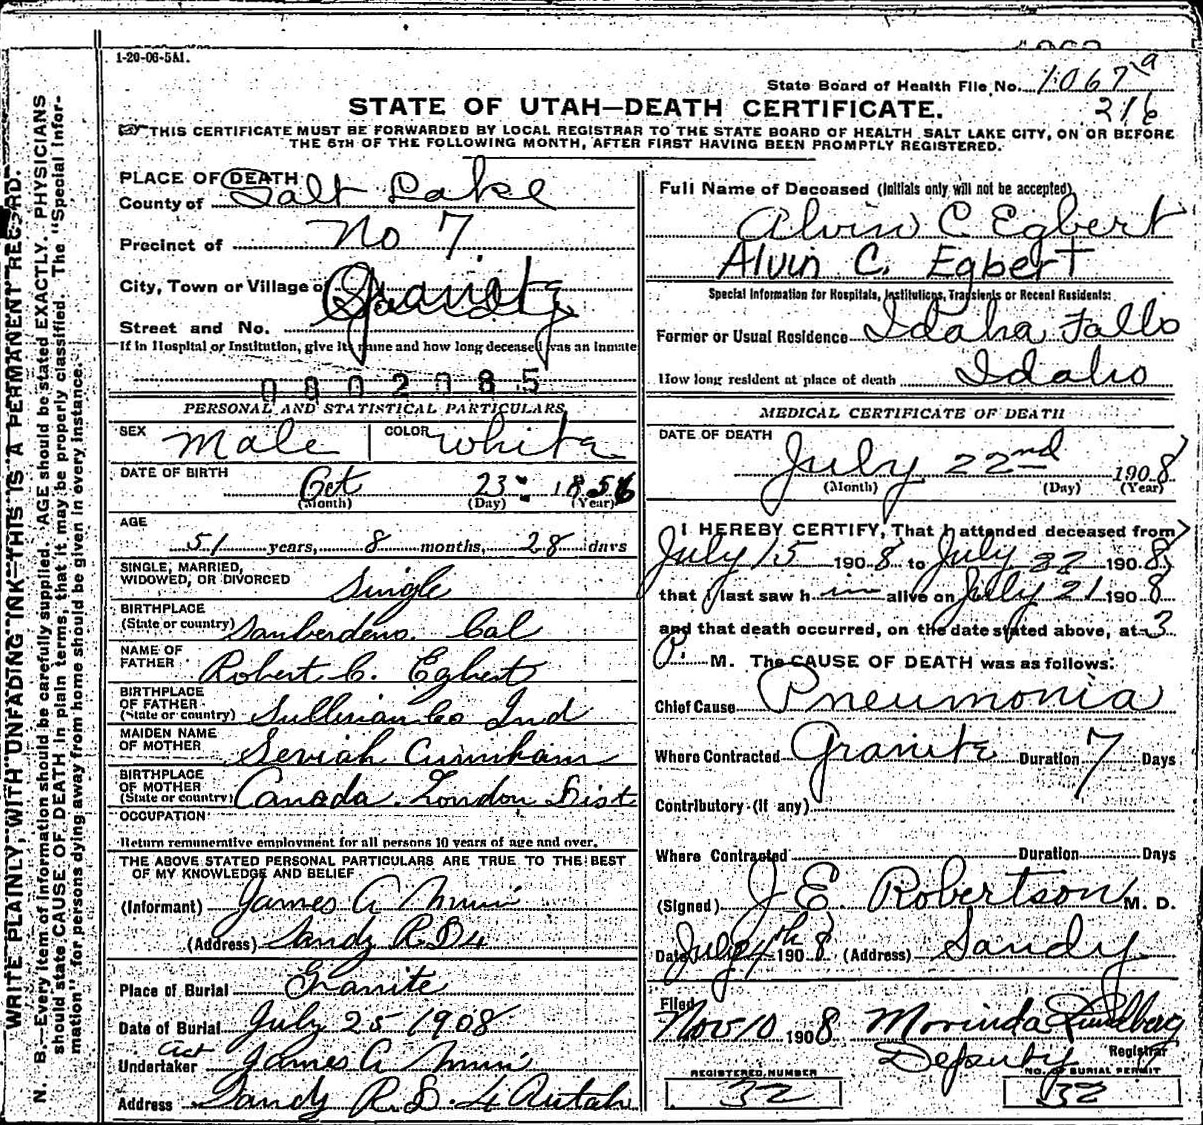 1-20-06-5M.
State Board of Health File No. 1067 a
216
STATE OF UTAH—DEATH CERTIFICATE.
THIS CERTIFICATE MUST BE FORWARDED BY LOCAL REGISTRAR TO THE STATE BOARD OF HEALTH, SALT LAKE CITY, ON OR BEFORE
THE 5TH OF THE FOLLOWING MONTH, AFTER FIRST HAVING BEEN PROMPTLY REGISTERED.
WRITE PLAINLY, WITH UNFADING INK—THIS IS A PERMANENT RECORD.
N. B.—Every item of information should be carefully supplied. AGE should be stated EXACTLY. PHYSICIANS
should state CAUSE OF DEATH in plain terms, that it may be properly classified. The "Special Infor-
mation" for persons dying away from home should be given in every instance.
PLACE OF DEATH
County of Salt Lake
Precinct of No 7.
City, Town or Village of
Street and No.
If in Hospital or Institution, give its name and how long deceased was an inmate
0002085
PERSONAL AND STATISTICAL PARTICULARS
SEX Male COLOR White
DATE OF BIRTH
Oct 23 1856
(Month) (Day) (Year)
AGE
51 years, 8 months, 28 days
SINGLE, MARRIED,
WIDOWED, OR DIVORCED Single
BIRTHPLACE
(State or country) Sanberdeno. Cal
NAME OF
FATHER Robert C. Egbert
BIRTHPLACE
OF FATHER
(State or country) Sullivan Co Ind
MAIDEN NAME
OF MOTHER Seviah Cunnham
BIRTHPLACE
OF MOTHER
(State or country) Canada. London Dist
OCCUPATION
Return remunerative employment for all persons 10 years of age and over.
THE ABOVE STATED PERSONAL PARTICULARS ARE TRUE TO THE BEST
OF MY KNOWLEDGE AND BELIEF
(Informant) James A Muir
(Address) Sandy R.D 4
Place of Burial Granite
Date of Burial July 25 1908
Act
Undertaker James A Muir
Address Sandy R.D. 4 Utah
Full Name of Deceased (Initials only will not be accepted)
Alvin C Egbert
Alvin C. Egbert
Special Information for Hospitals, Institutions, Transients or Recent Residents:
Former or Usual Residence Idaha Falls
How long resident at place of death Idaho
MEDICAL CERTIFICATE OF DEATH
DATE OF DEATH
July 22nd 1908
(Month) (Day) (Year)
I HEREBY CERTIFY, That I attended deceased from
July 15 1908 to July 22 1908,
that I last saw him alive on July 21 1908
and that death occurred, on the date stated above, at 3
P. M. The CAUSE OF DEATH was as follows:
Chief Cause Pneumonia
Where Contracted Granite Duration 7 Days
Contributory (if any)
Where Contracted Duration Days
(Signed) J E. Robertson M. D.
Date July 1908 (Address) Sandy
Filed
Nov 10 1908 Morinda Lundberg
Deputy Registrar
REGISTERED NUMBER
32
NO. OF BURIAL PERMIT
32